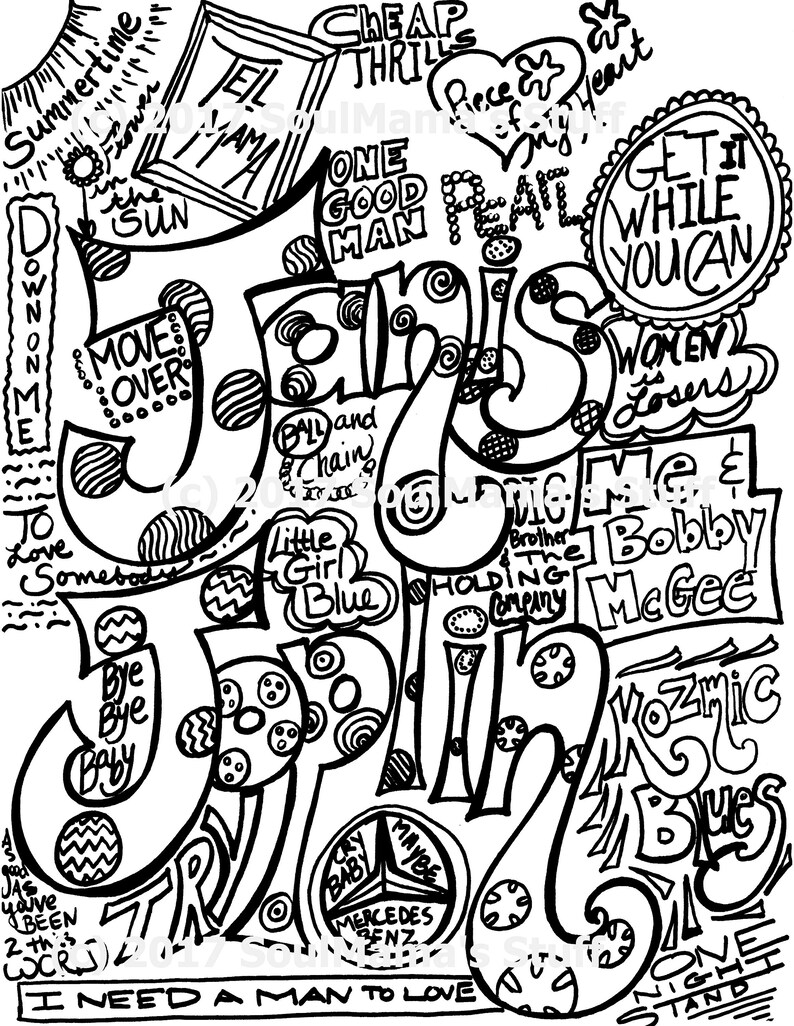 CHEAP
THRILLS
Summertime
TELL
MAMA
Piece
of
My Heart
(c) 2017 SoulMama's Stuff
Flower
in the
SUN
ONE
GOOD
MAN
PEARL
GET IT
WHILE
YOU CAN
DOWN ON ME
Janis
MOVE
OVER
WOMEN
is
Losers
BALL and
Chain
(c) 2017 SoulMama's Stuff
Me &
Bobby
McGee
TO
Love
Somebody
Little
Girl
Blue
BIG
Brother
& The
HOLDING
Company
Joplin
Bye
Bye
Baby
Kozmic
Blues
CRY
BABY
MAYBE
MERCEDES
BENZ
AS
good
AS
you've
BEEN
2 this
WORLD
TRY
(c) 2017 SoulMama's Stuff
ONE
NIGHT
STAND
I NEED A MAN TO LOVE